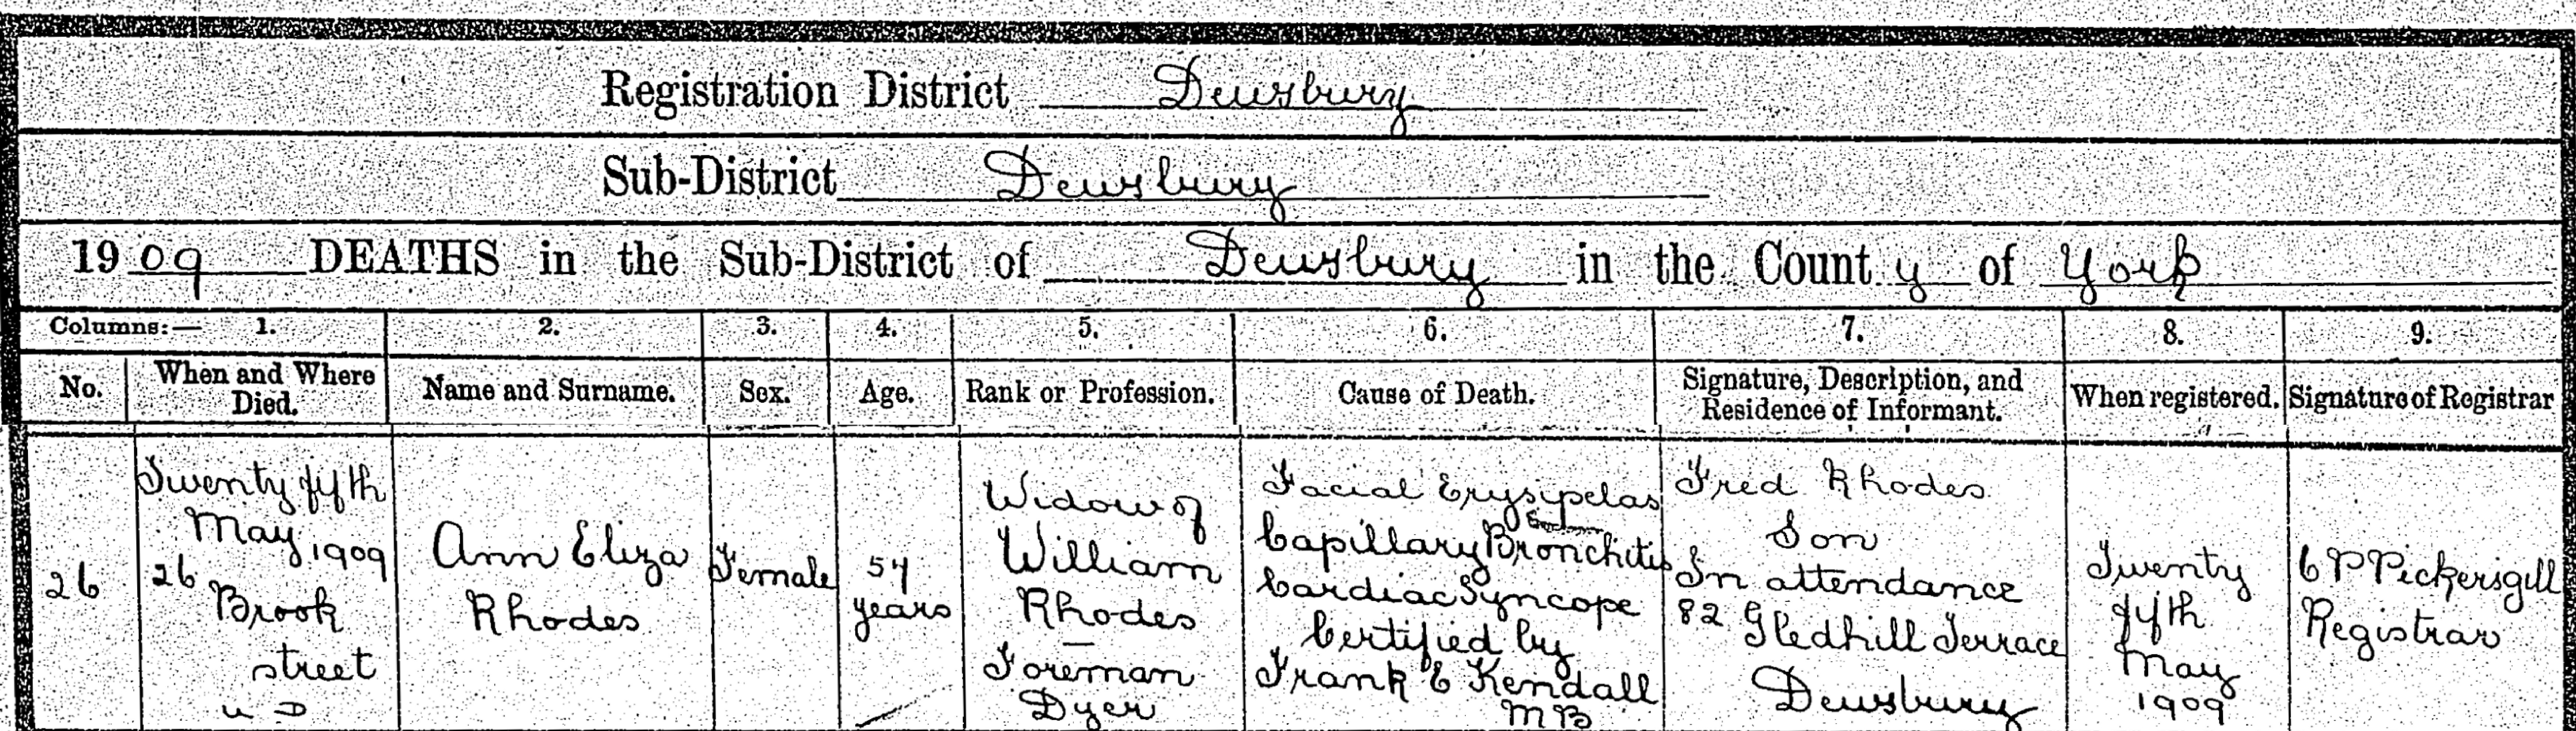 Registration District Dewsbury
Sub-District Dewsbury
1909 DEATHS in the Sub-District of Dewsbury in the County of York
Columns:— 1. 2. 3. 4. 5. 6. 7. 8. 9.
No.
When and Where
Died.
Name and Surname.
Sex.
Age.
Rank or Profession.
Cause of Death.
Signature, Description, and
Residence of Informant.
When registered.
Signature of Registrar
26
Twenty fifth
May 1909
26
Brook
street
U D
Ann Eliza
Rhodes
Female
54
years
Widow of
William
Rhodes
Foreman
Dyer
Facial Erysipelas
Capillary Bronchitis
Cardiac Syncope
Certified by
Frank E Kendall
MB
Fred Rhodes
Son
In attendance
82 Gledhill Terrace
Dewsbury
Twenty
fifth
May
1909
C P Pickersgill
Registrar